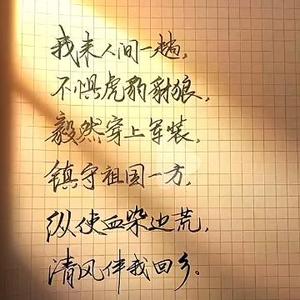 我来人间一趟,
不惧虎豹豺狼,
毅然穿上军装,
镇守祖国一方,
纵使血染边荒,
清风伴我回乡。